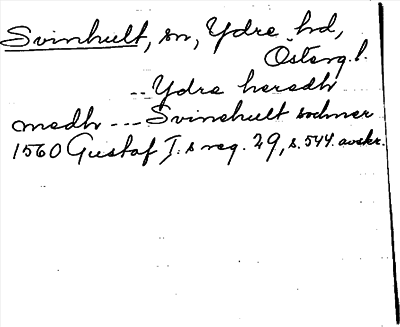 Svinhult, sn, Ydre hd,
Österg. l.
-- Ydre heradh
medh --- Svinehult sochner
1560 Gustaf I:s reg. 29, s. 544. avskr.